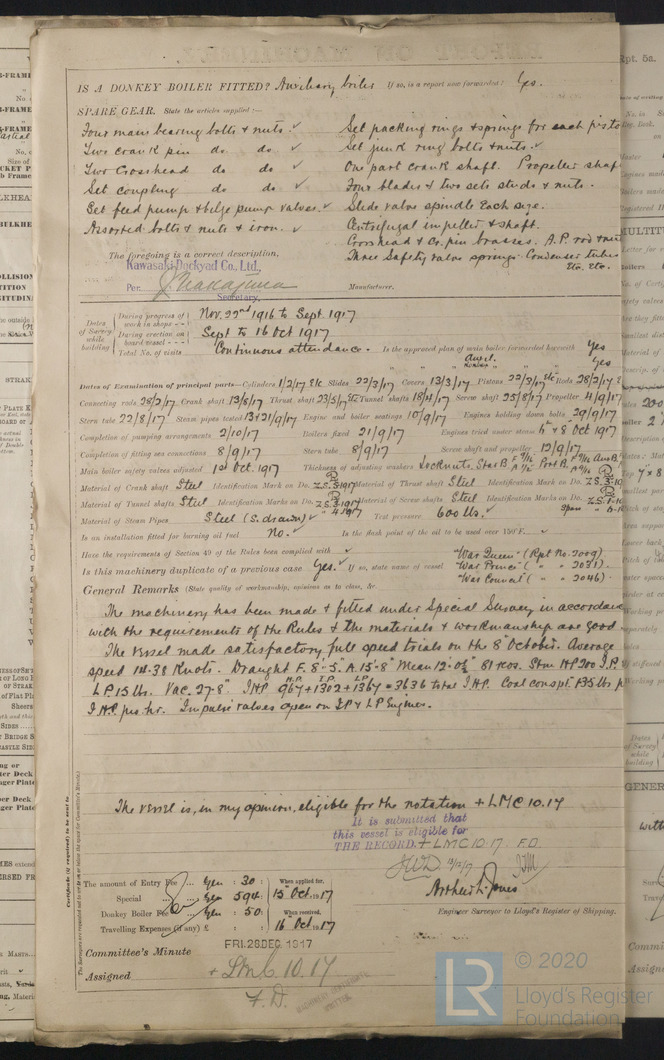 IS A DONKEY BOILER FITTED? Auxiliary boiler If so, is a report now forwarded? Yes.
SPARE GEAR. State the articles supplied:—
Four main bearing bolts & nuts. ✓ Set packing rings & springs for each
Two crank pin do do. ✓ Set junk ring bolts & nuts. ✓
Two Crosshead do do ✓ One part crank shaft. Propeller shaf
Set coupling do do ✓ Four blades & two sets studs & nuts.
Set feed pump & bilge pump valves. ✓ Slide valve spindle Each size.
Assorted bolts & nuts & iron. ✓ Centrifugal impeller & shaft.
Crosshead & Co. pin brasses. A.P. rod
The foregoing is a correct description, Three Safety valve springs. Condenser tubes
Kawasaki Dockyad Co., Ltd. Etc. Etc.
Per. Manufacturer.
Secretary.
Dates of Survey while building
During progress of work in shops - - Nov. 22nd 1916 to Sept. 1917
During erection on board vessel - - - Sept to 16 Oct 1917
Total No. of visits Continuous attendance. Is the approved plan of main boiler forwarded herewith Yes
" " " " Yes
Dates of Examination of principal parts—Cylinders 1/2/17 &c Slides 22/3/17 Covers 13/3/17 Pistons 22/3/17 &c Rods 28/2/17
Connecting rods 28/2/17 Crank shaft 13/8/17 Thrust shaft 23/5/17 Tunnel shafts 18/4/17 Screw shaft 25/8/17 Propeller 4/9/17
Stern tube 22/8/17 Steam pipes tested 13 & 21/9/17 Engine and boiler seatings 10/9/17 Engines holding down bolts 29/9/17
Completion of pumping arrangements 2/10/17 Boilers fixed 21/9/17 Engines tried under steam & 8 Oct 1917
Completion of fitting sea connections 8/9/17 Stern tube 8/9/17 Screw shaft and propeller 12/9/17
Main boiler safety valves adjusted 1st Oct. 1917 Thickness of adjusting washers Locknuts. Star B Port B
Material of Crank shaft Steel Identification Mark on Do. Material of Thrust shaft Steel Identification Mark on Do.
Material of Tunnel shafts Steel Identification Marks on Do. Material of Screw shafts Steel Identification Marks on Do.
Material of Steam Pipes Steel (S. drawn) ✓ Test pressure 600 lbs. ✓
Is an installation fitted for burning oil fuel No. ✓ Is the flash point of the oil to be used over 150°F. ✓
Have the requirements of Section 49 of the Rules been complied with ✓ "War Queen" (Rpt No. 2009)
Is this machinery duplicate of a previous case Yes. ✓ If so, state name of vessel "War Prince" ( " " 2031)
"War Council" ( " " 2046)
General Remarks (State quality of workmanship, opinions as to class, &c.
The machinery has been made & fitted under Special Survey in accordance
with the requirements of the Rules & the materials & workmanship are good.
The vessel made satisfactory full speed trials on the 8th October. Average
speed 14.38 Knots. Draught F. 8'-5" A. 15'-8" Mean 12'-0½" 81 revs. Stm HP 200 I.P.
LP 15 lbs. Vac. 27.8". IHP 967 + 1302 + 1367 = 3636 total I.H.P. Coal conspt. 1.35 lbs p
I.H.P. per hr. Impulse valves open on IP & LP Engines.
The vessel is, in my opinion, eligible for the notation + LMC 10.17
It is submitted that
this vessel is eligible for
THE RECORD. + LMC 10.17 F.D.
Arthur L. Jones
Engineer Surveyor to Lloyd's Register of Shipping.
Certificate (if required) to be sent to
The amount of Entry Fee ... Yen : 30 : When applied for,
Special ... Yen 594 : 15 Oct. 1917
Donkey Boiler Fee ... Yen : 50 : When received,
Travelling Expenses (if any) £ : : 16 Oct 1917
Committee's Minute FRI. 28 DEC. 1917
Assigned + LMC 10.17
F.D.
MACHINERY CERTIFICATE
WRITTEN
LR
© 2020
Lloyd's Register
Foundation